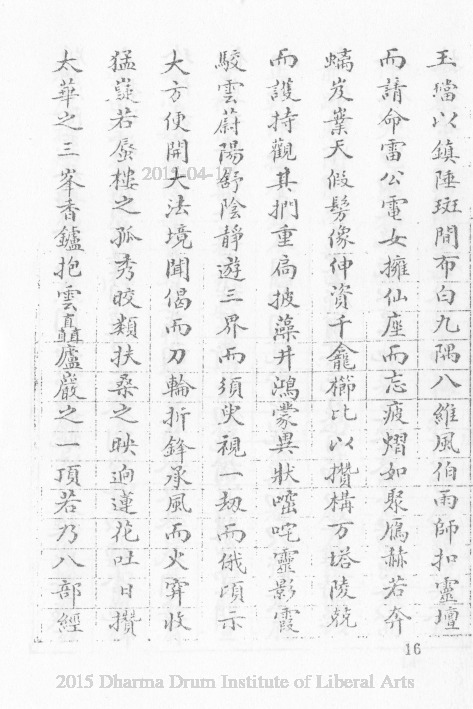 玉璫以鎮陲斑間布白九隅八維風伯雨師扣靈壇
而請命雷公電女擁仙座而忘疲熠如聚鴈赫若奔
螭岌業天假髣像伸資千龕櫛比以攢構万塔陵兢
而護持觀其捫重扄披藻井鴻蒙異狀噁咤靈影霞
駮雲蔚陽舒陰靜遊三界而須臾視一劫而俄頃示
大方便開大法境聞偈而刀輪折鋒承風而火穽收
猛嶷若蜃樓之孤秀晈類扶桑之映逈蓮花吐日攢
太華之三峯香鑪抱雲矗廬巖之一頂若乃八部經
2011-04-1
16
2015 Dharma Drum Institute of Liberal Arts